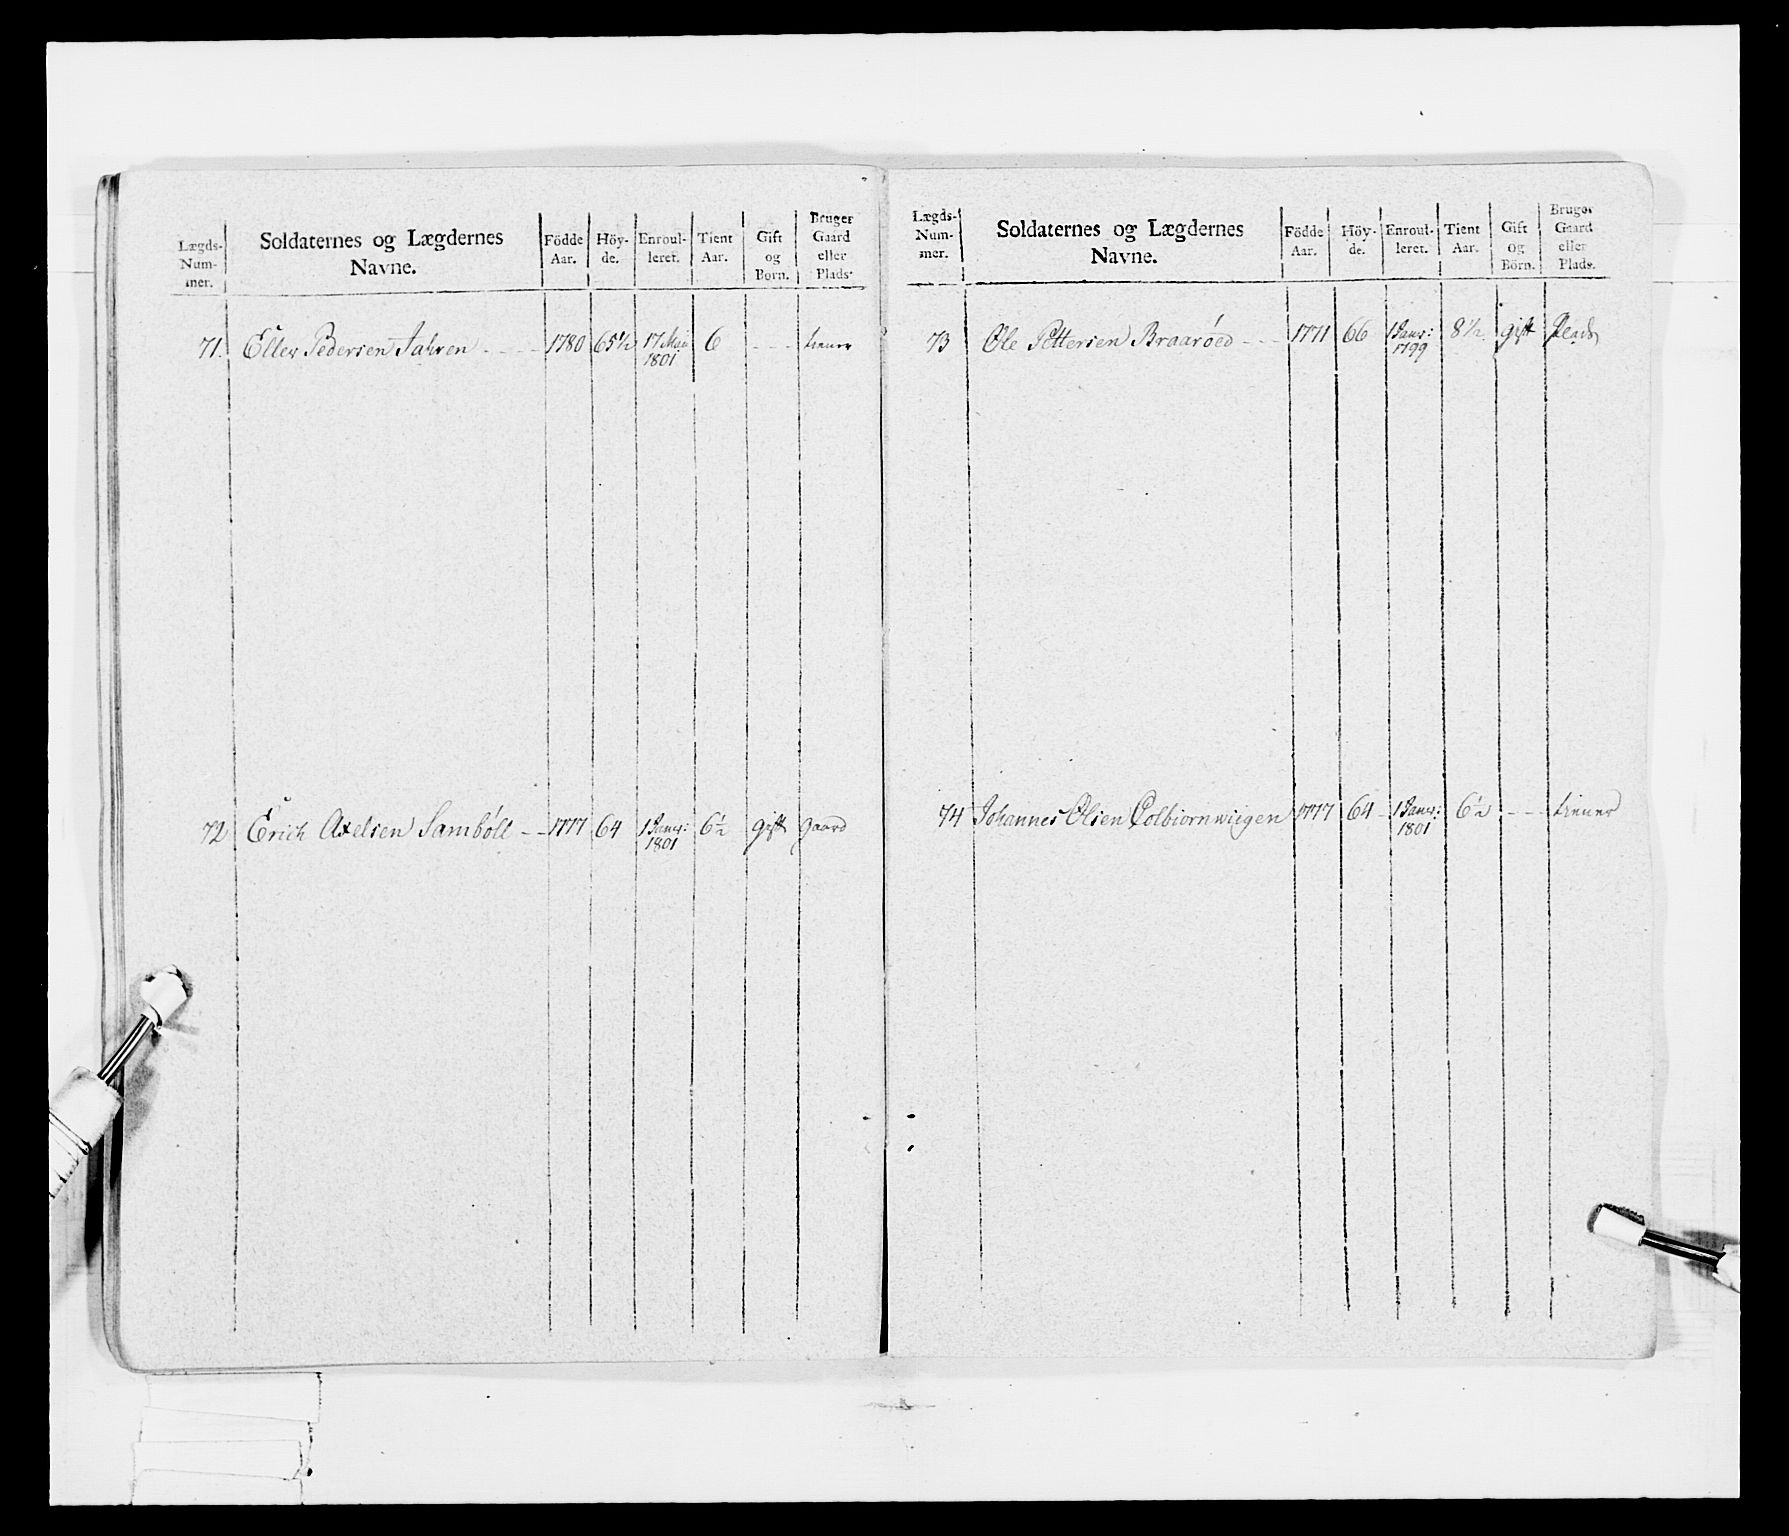 Lægds-Num-mer. Soldaternes og Lægdernes Navne. Födde Aar. Höy-de. Enroul-leret. Tient Aar. Gift og Börn. Bruger Gaard eller Plads.
71. Eller Pedersen Jahren - - - 1780 65½ 17 Mai 1801 6 - - - tiener
72 Erich Axelsen Samböll - - 1777 64 1 Janr: 1801 6½ gift gaard
Lægds-Num-mer. Soldaternes og Lægdernes Navne. Födde Aar. Höy-de. Enroul-leret. Tient Aar. Gift og Börn. Bruger Gaard eller Plads.
73 Ole Pettersen Braaröed - - - 1771 66 1 Janr: 1799 8½ gift Plads
74 Johannes Olsen Colbiornwiigen 1777 64 - 1 Janr: 1801 6½ - - - tiener